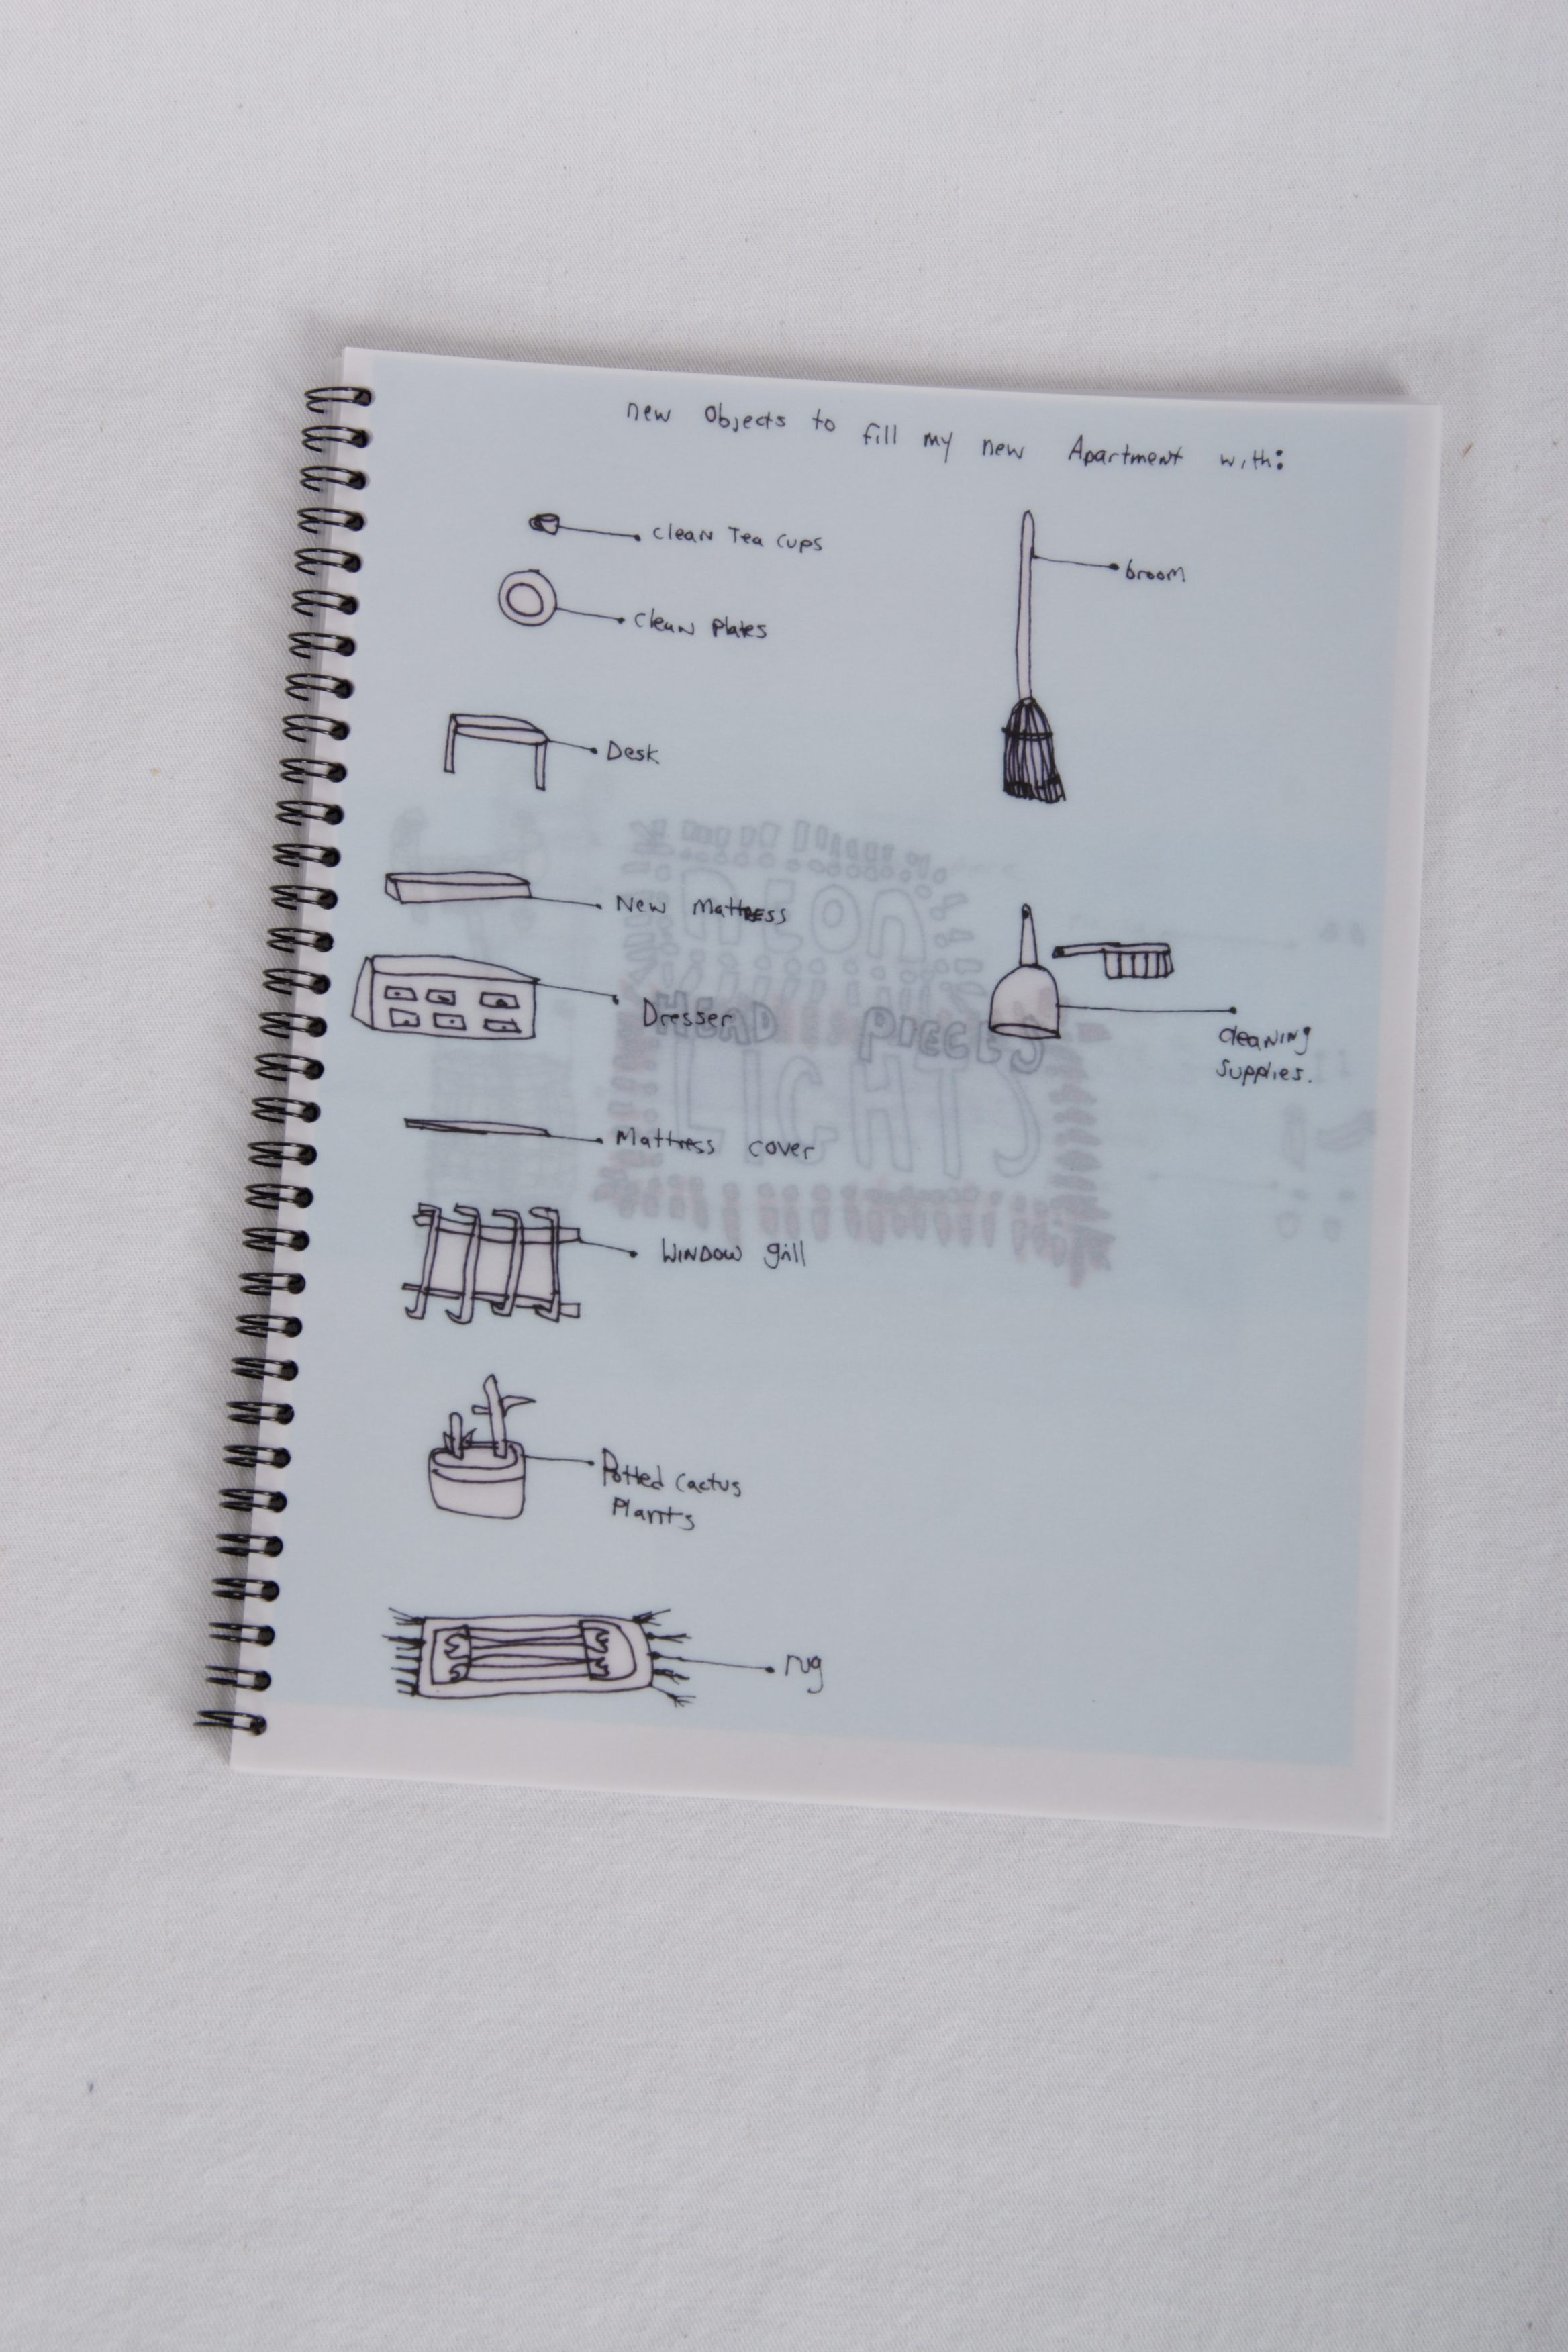 new Objects to fill my new Apartment with:
clean Tea cups
clean plates
Desk
New Mattress
Dresser
Mattress cover
WINDOW grill
Potted cactus
Plants
rug
broom
cleaning
supplies.
NEON
HEAD PIECES
LIGHTS